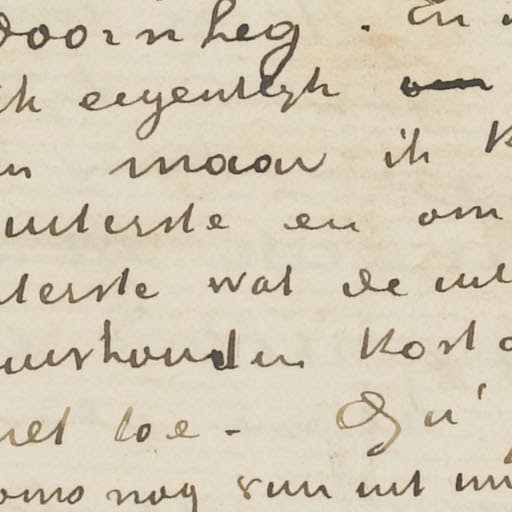 doornheg. En
ik eigentlijk om
en maar ik k
uiterste en om
uiterste wat de uit
huishouden kost
niet toe -
soms nog een uit mij